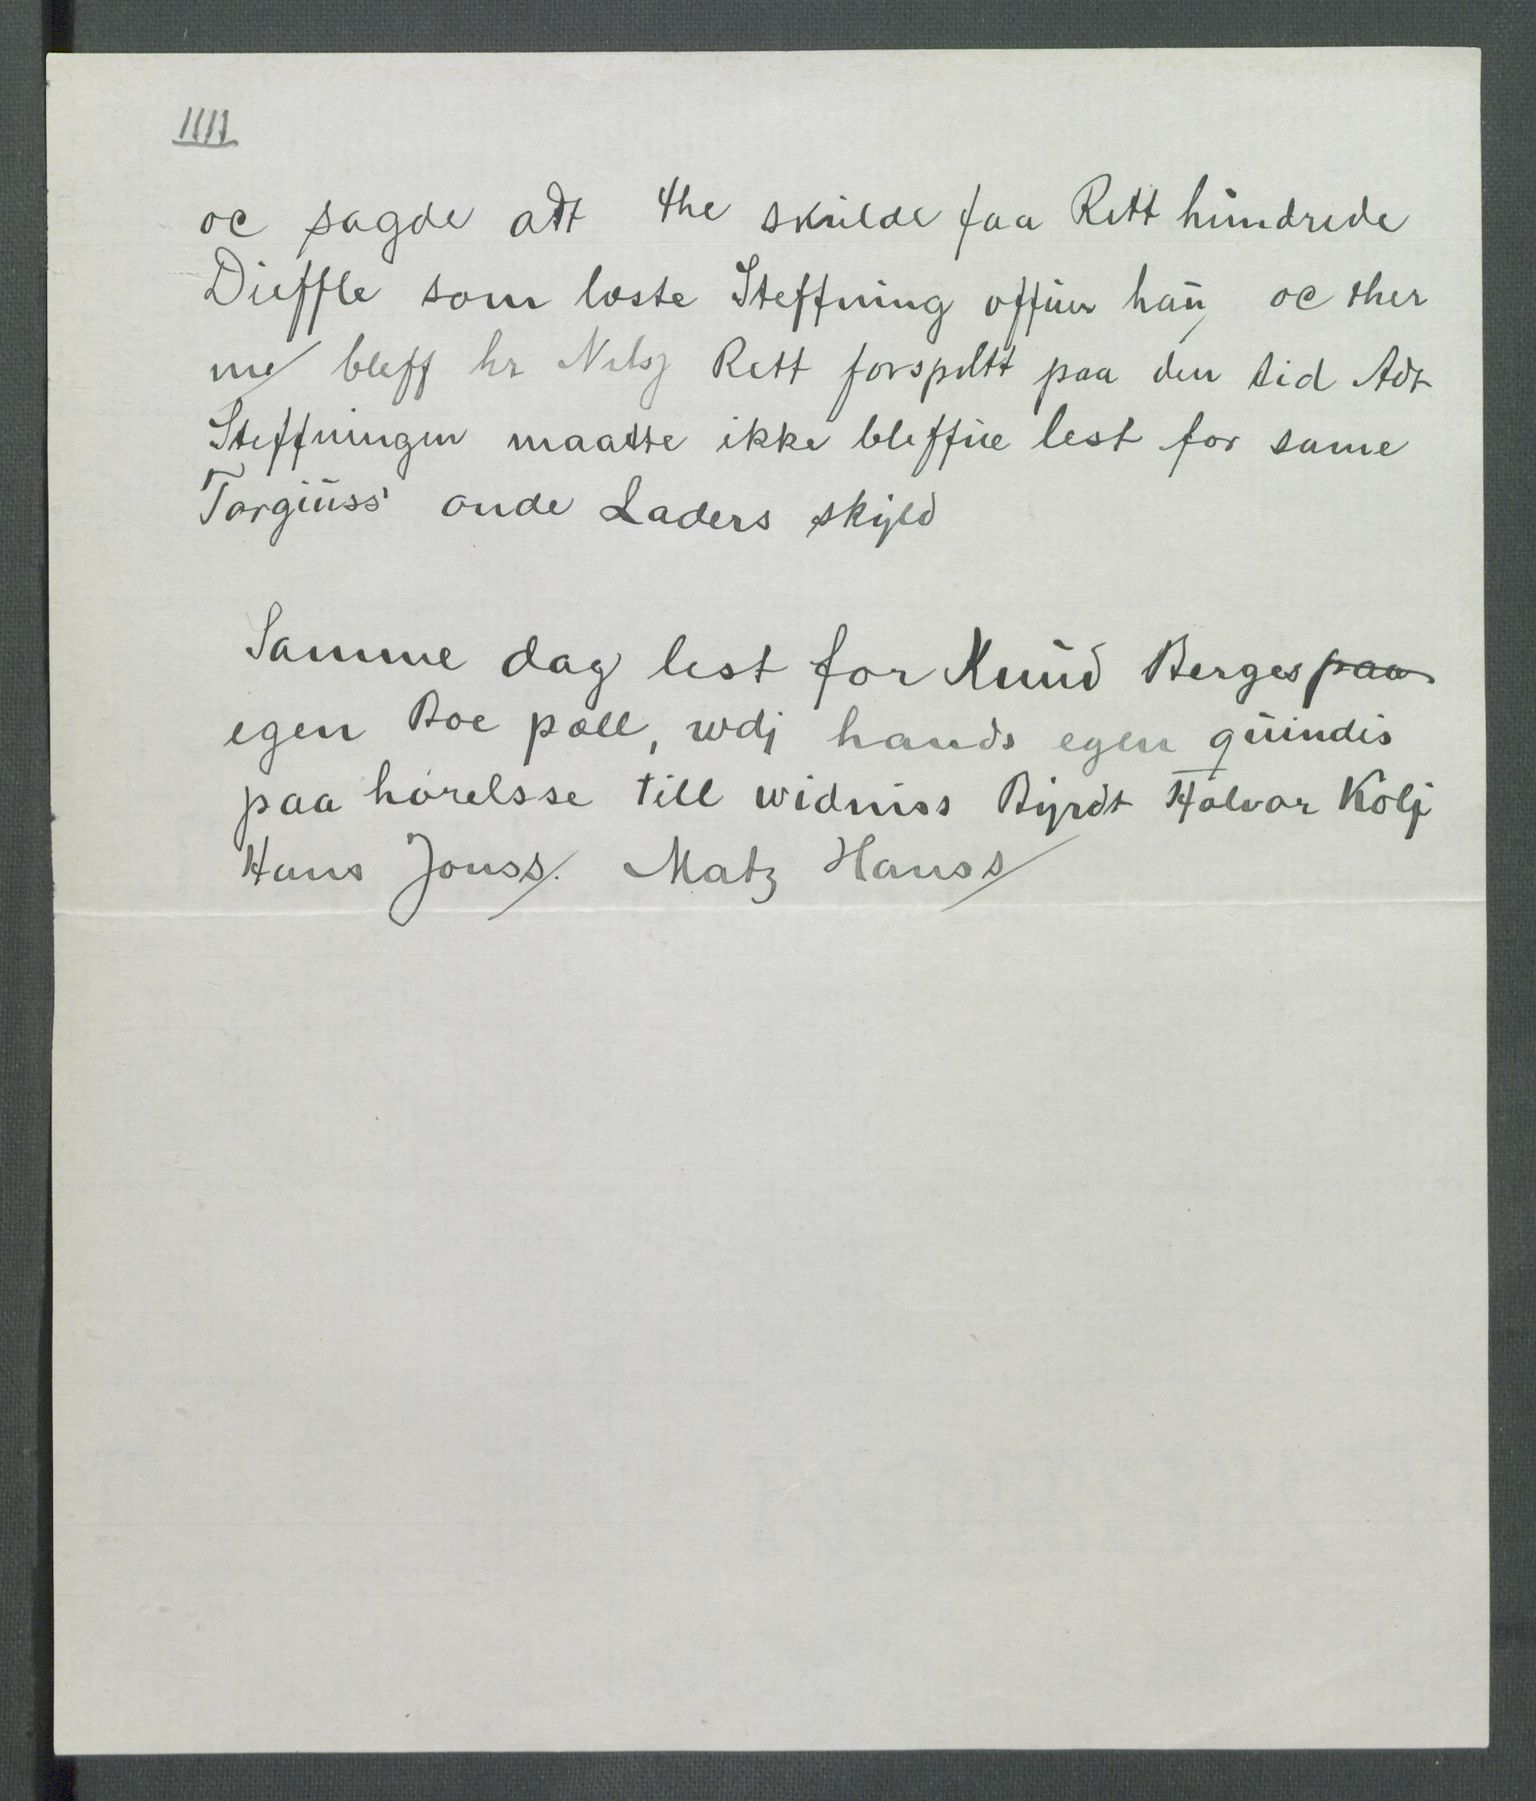 IIII
oc sagde adt the skulde faa Rett hundrede
Dieffle som loste Steffning offuer hañ, oc ther
me/ bleff hr Nilsz Rett forspiltt paa den tid Adt
Steffningen maatte ikke bleffue lest for same
Torgiuss' onde Laders skyld
Samme dag lest for Knud Berges paa
egen Boe pæll, wdj hands egen quindis
paa hørelsse till widniss Byrdt Halvor Kolj
Hans Jonss/. Matz Hanss/